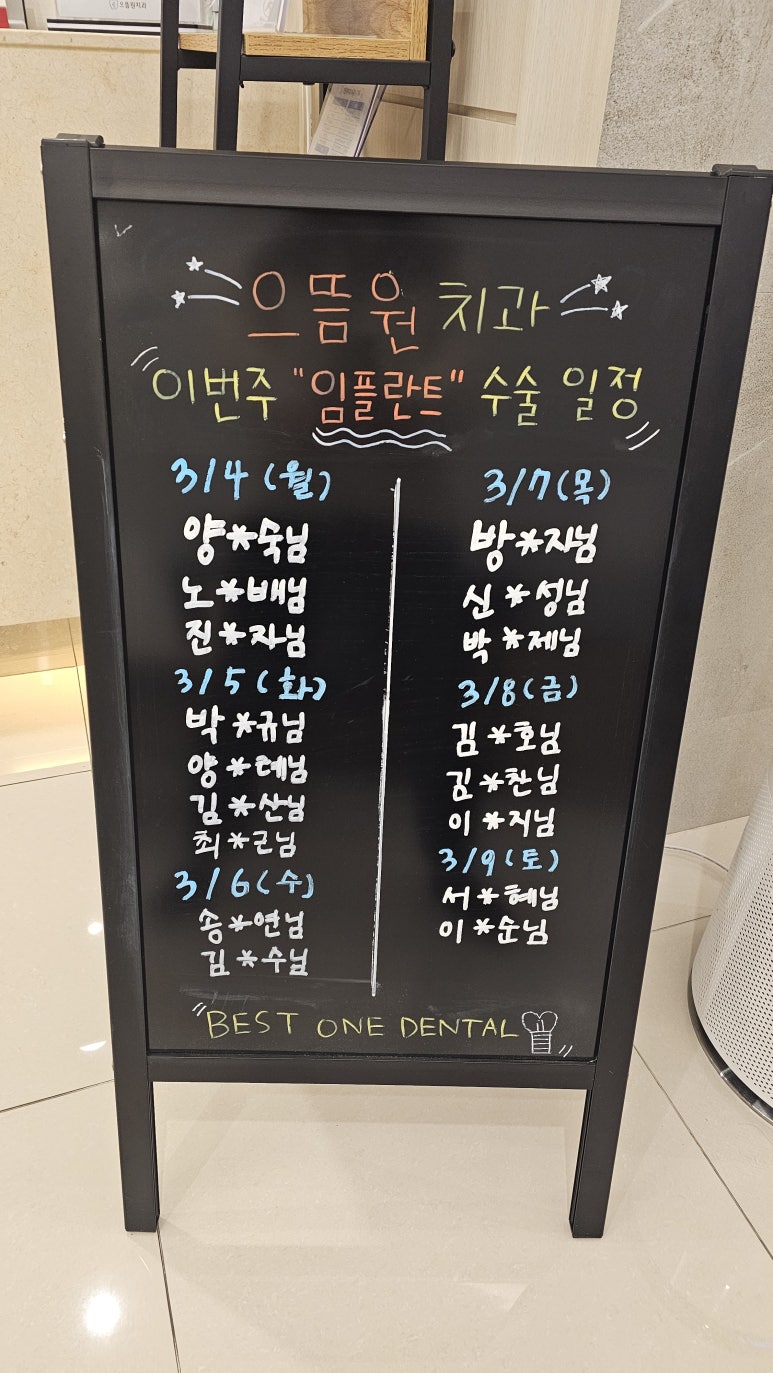 으뜸원치과
으뜸원 치과
이번주 "임플란트" 수술 일정
3/4 (월)
양*숙님
노*배님
진*자님
3/5 (화)
박*규님
양*태님
김*산님
최*근님
3/6 (수)
송*연님
김*수님
3/7 (목)
방*자님
신*성님
박*제님
3/8 (금)
김*호님
김*찬님
이*지님
3/9 (토)
서*혜님
이*순님
"BEST ONE DENTAL